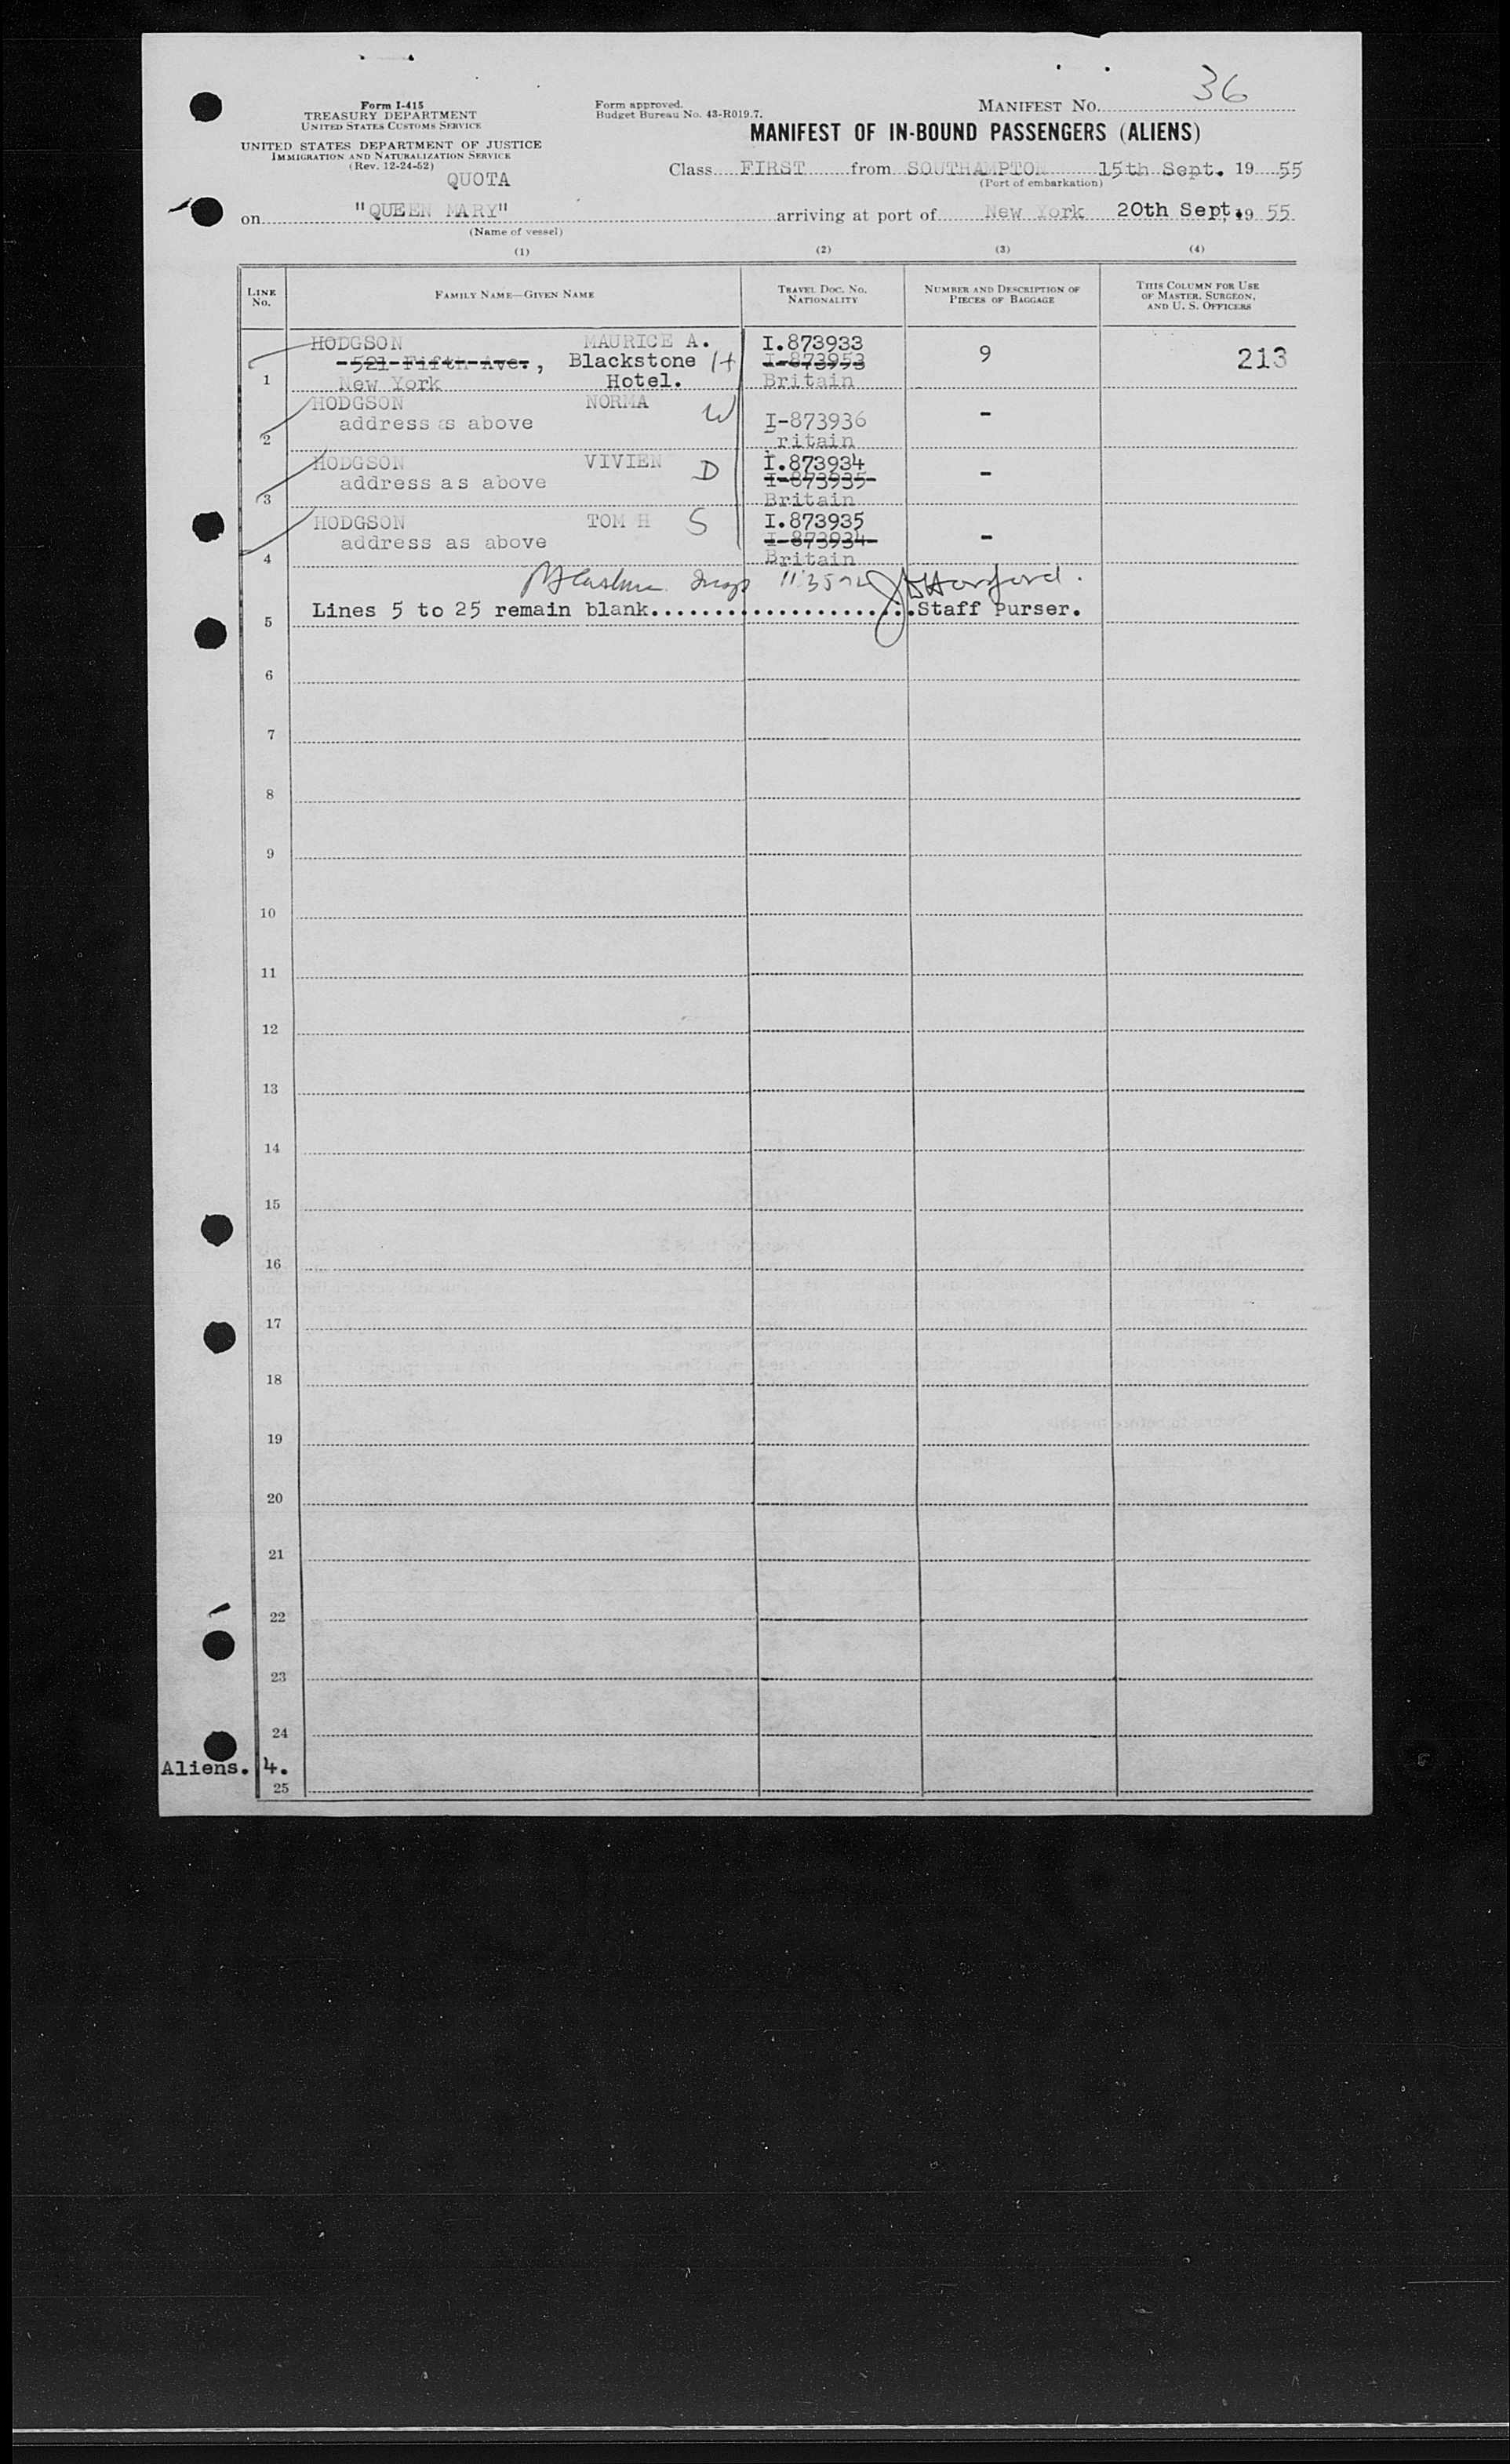 36
Form I-415
TREASURY DEPARTMENT
UNITED STATES CUSTOMS SERVICE
Form approved.
Budget Bureau No. 43-R019.7.
MANIFEST NO.
MANIFEST OF IN-BOUND PASSENGERS (ALIENS)
UNITED STATES DEPARTMENT OF JUSTICE
IMMIGRATION AND NATURALIZATION SERVICE
(Rev. 12-24-52)
QUOTA
Class FIRST from SOUTHAMPTON 15th Sept. 19 55
(Port of embarkation)
on "QUEEN MARY" arriving at port of New York 20th Sept. 19 55
(Name of vessel)
(1) (2) (3) (4)
LINE No.
FAMILY NAME—GIVEN NAME
TRAVEL DOC. NO. NATIONALITY
NUMBER AND DESCRIPTION OF PIECES OF BAGGAGE
THIS COLUMN FOR USE OF MASTER, SURGEON, AND U. S. OFFICERS
HODGSON MAURICE A. I.873933
521 Fifth Ave., Blackstone H I-873953 9 213
1 New York Hotel. Britain
HODGSON NORMA W
address as above I-873936 -
2 ritain
HODGSON VIVIEN D I.873934
address as above I-873935 -
3 Britain
HODGSON TOM H S I.873935
address as above I-873934 -
4 Britain
Insp
5 Lines 5 to 25 remain blank. Staff Purser.
6
7
8
9
10
11
12
13
14
15
16
17
18
19
20
21
22
23
24
Aliens. 4.
25